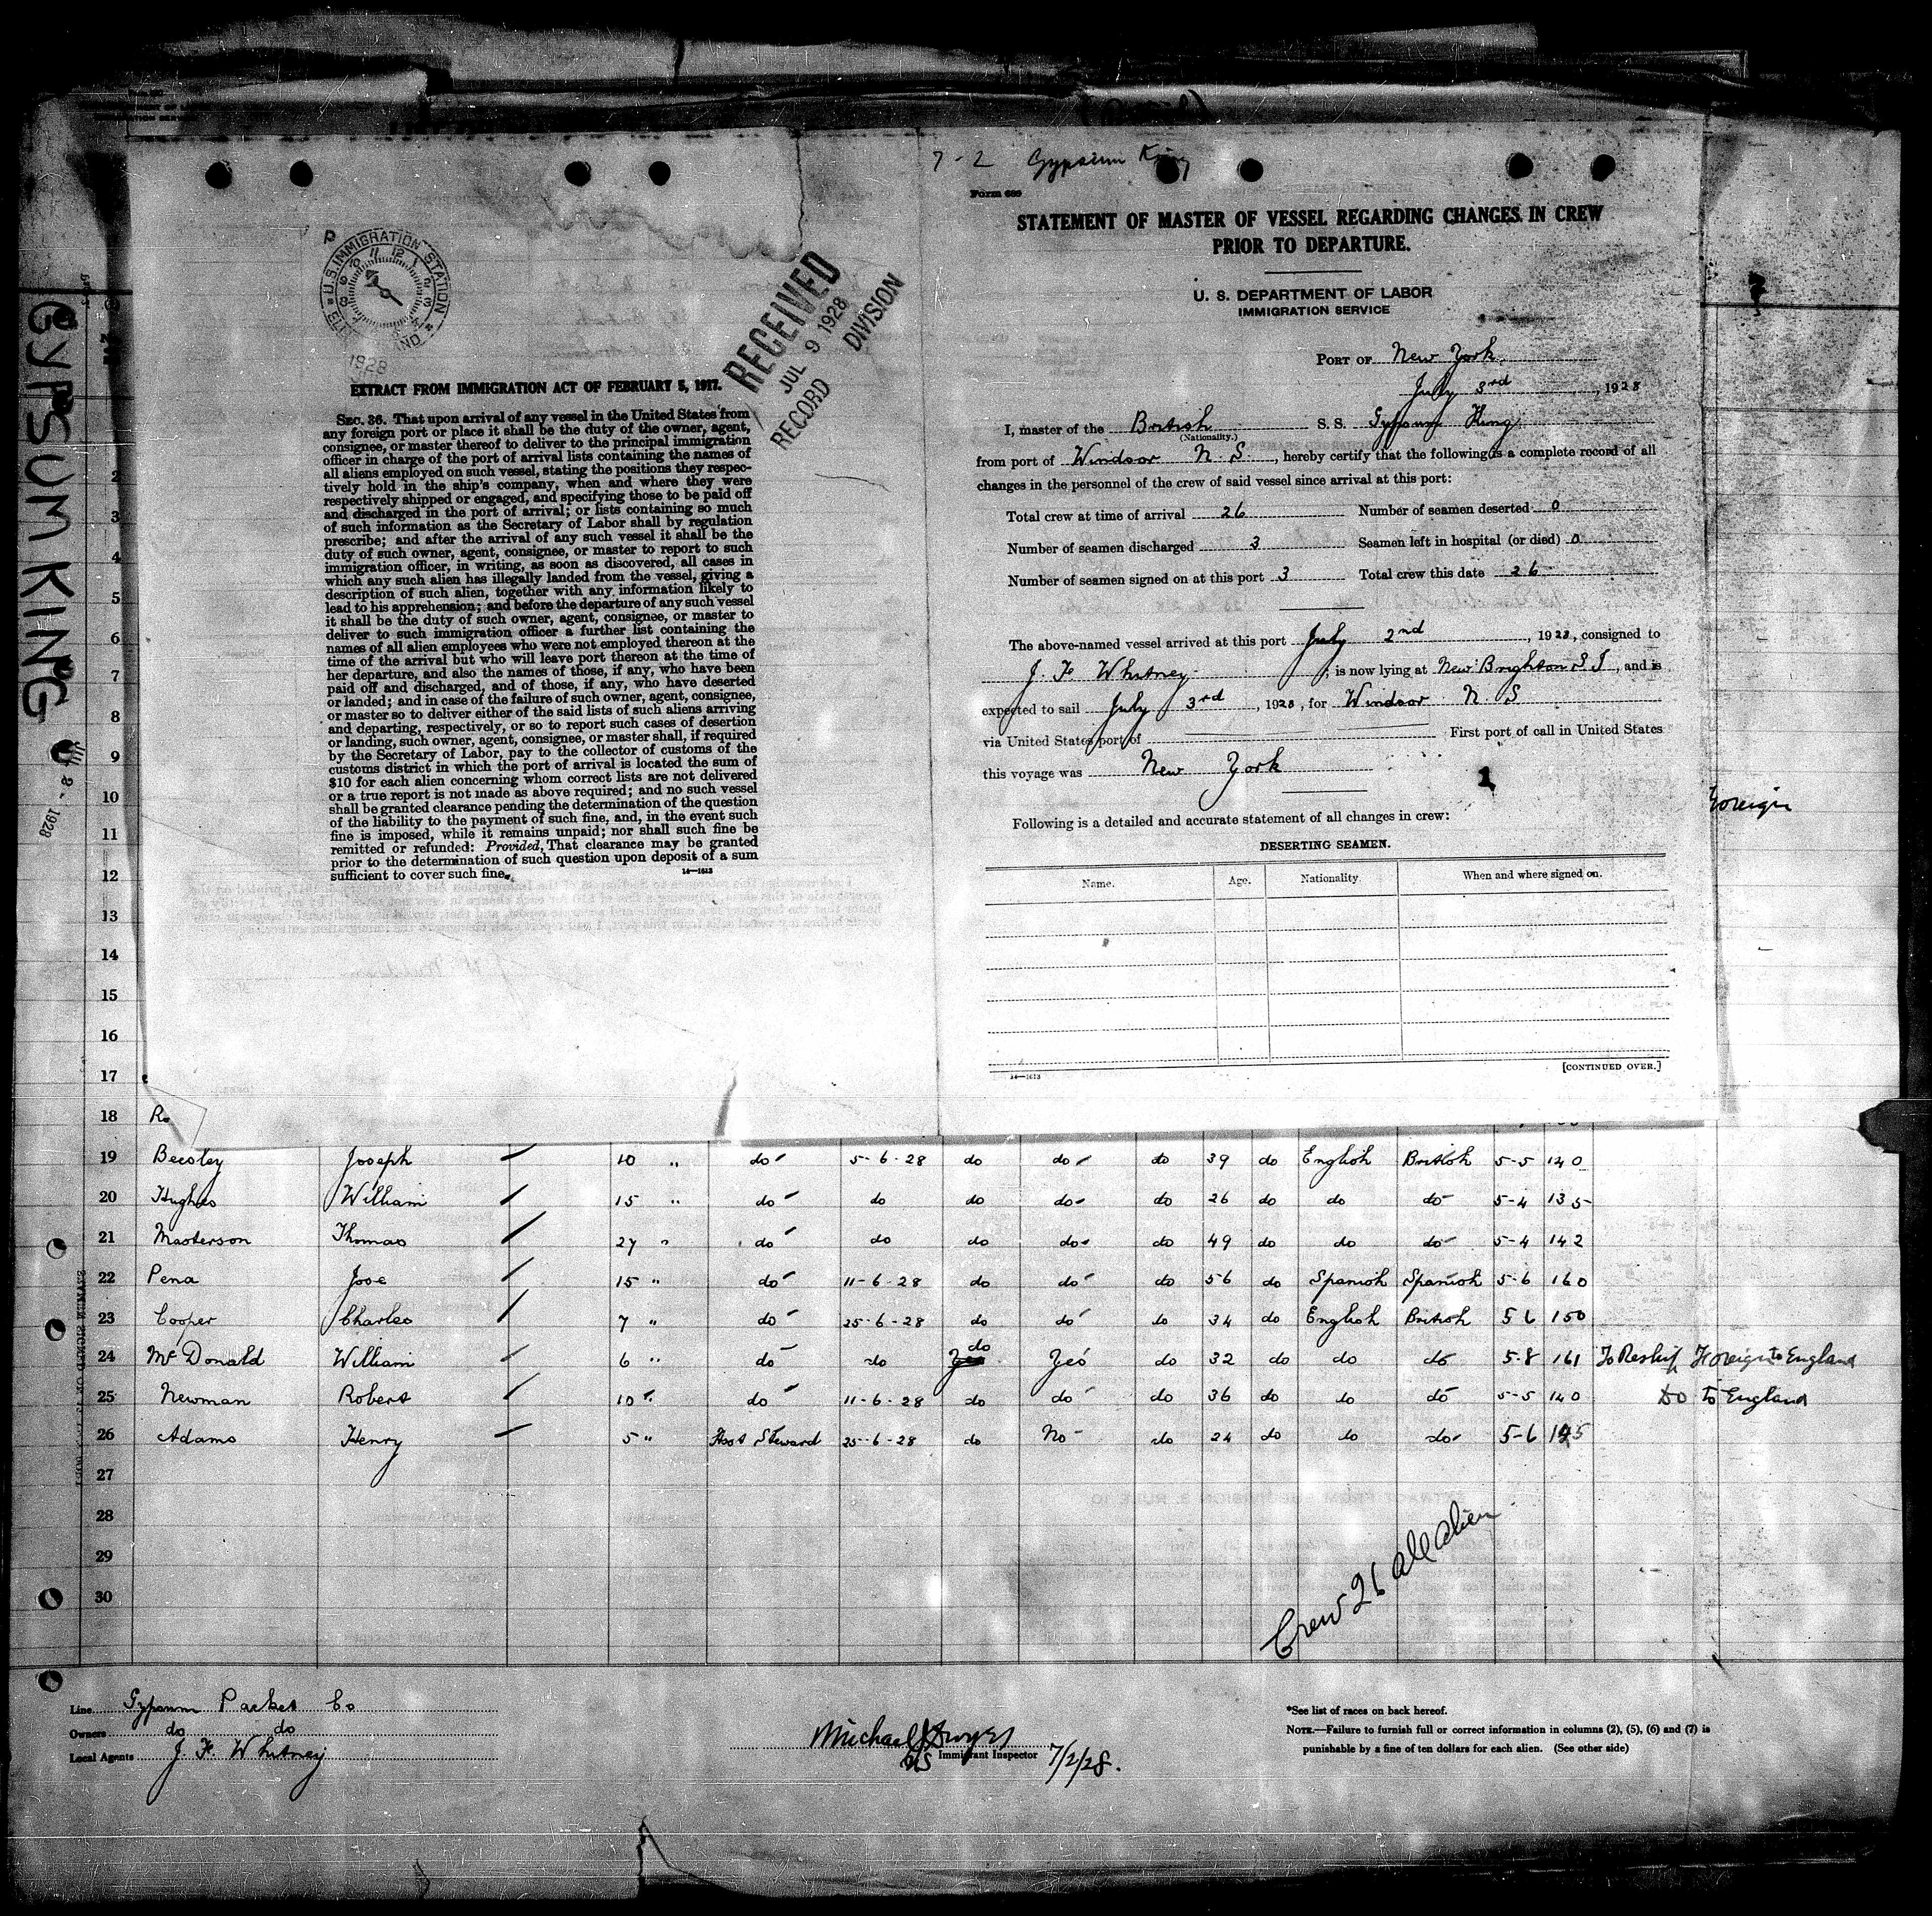 7-2 Gypsum King
Form 689
STATEMENT OF MASTER OF VESSEL REGARDING CHANGES IN CREW
PRIOR TO DEPARTURE.
U. S. DEPARTMENT OF LABOR
IMMIGRATION SERVICE
PORT OF New York
July 3rd, 1928
I, master of the British S. S. Gypsum King
(Nationality.)
from port of Windsor N S, hereby certify that the following is a complete record of all
changes in the personnel of the crew of said vessel since arrival at this port:
Total crew at time of arrival 26 Number of seamen deserted 0
Number of seamen discharged 3 Seamen left in hospital (or died) 0
Number of seamen signed on at this port 3 Total crew this date 26
The above-named vessel arrived at this port July 2nd, 1928, consigned to
J. F Whitney, is now lying at New Brighton S I, and is
expected to sail July 3rd, 1928, for Windsor N S
via United States port of First port of call in United States
this voyage was New York
1
Following is a detailed and accurate statement of all changes in crew:
DESERTING SEAMEN.
Name. Age. Nationality When and where signed on.
14—1613 [CONTINUED OVER.]
P
U.S. IMMIGRATION STATION
1928
RECEIVED
JUL 9 1928
RECORD DIVISION
EXTRACT FROM IMMIGRATION ACT OF FEBRUARY 5, 1917.
SEC. 36. That upon arrival of any vessel in the United States from
any foreign port or place it shall be the duty of the owner, agent,
consignee, or master thereof to deliver to the principal immigration
officer in charge of the port of arrival lists containing the names of
all aliens employed on such vessel, stating the positions they respec-
tively hold in the ship's company, when and where they were
respectively shipped or engaged, and specifying those to be paid off
and discharged in the port of arrival; or lists containing so much
of such information as the Secretary of Labor shall by regulation
prescribe; and after the arrival of any such vessel it shall be the
duty of such owner, agent, consignee, or master to report to such
immigration officer, in writing, as soon as discovered, all cases in
which any such alien has illegally landed from the vessel, giving a
description of such alien, together with any information likely to
lead to his apprehension; and before the departure of any such vessel
it shall be the duty of such owner, agent, consignee, or master to
deliver to such immigration officer a further list containing the
names of all alien employees who were not employed thereon at the
time of the arrival but who will leave port thereon at the time of
her departure, and also the names of those, if any, who have been
paid off and discharged, and of those, if any, who have deserted
or landed; and in case of the failure of such owner, agent, consignee,
or master so to deliver either of the said lists of such aliens arriving
and departing, respectively, or so to report such cases of desertion
or landing, such owner, agent, consignee, or master shall, if required
by the Secretary of Labor, pay to the collector of customs of the
customs district in which the port of arrival is located the sum of
$10 for each alien concerning whom correct lists are not delivered
or a true report is not made as above required; and no such vessel
shall be granted clearance pending the determination of the question
of the liability to the payment of such fine, and, in the event such
fine is imposed, while it remains unpaid; nor shall such fine be
remitted or refunded: Provided, That clearance may be granted
prior to the determination of such question upon deposit of a sum
sufficient to cover such fine.
14—1613
GYPSUM KING
2 - 1928
2
3
4
5
6
7
8
9
10 Foreign
11
12
13
14
15
16
17
18 R.
19 Beesley Joseph 10 " do 5-6-28 do do do 39 do English British 5-5 140
20 Hughes William 15 " do do do do do 26 do do do 5-4 135
21 Masterson Thomas 27 " do do do do do 49 do do do 5-4 142
22 Pena Jose 15 " do 11-6-28 do do do 56 do Spanish Spanish 5-6 160
23 Cooper Charles 7 " do 25-6-28 do do do 34 do English British 5 6 150
24 McDonald William 6 " do do Yes do Yes do 32 do do do 5-8 161 To Reship Foreign to England
25 Newman Robert 10 " do 11-6-28 do do do 36 do do do 5-5 140 Do to England
26 Adams Henry 5 " Asst Steward 25-6-28 do No do 24 do do do 5-6
27
28
29
30
Crew 26 all alien
Line Gypsum Packet Co
Owners do do
Local Agents J. F. Whitney
Michael J Dwyer
Immigrant Inspector 7/2/28.
*See list of races on back hereof.
NOTE.—Failure to furnish full or correct information in columns (2), (5), (6) and (7) is
punishable by a fine of ten dollars for each alien. (See other side)